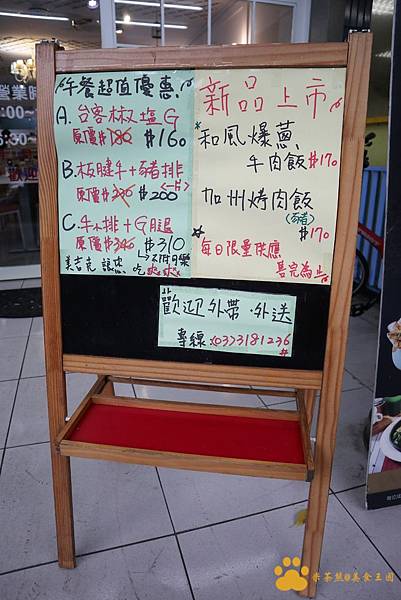 午餐超值優惠!
A. 台客椒塩G
原價$180 $160
B. 板腱牛+豬排
<一片>
原價$230 $200
C. 牛小排+G腿
原價$340 $310
美吉克 讓您 吃
新品上市
和風爆蔥
牛肉飯$170
加州烤肉飯
<豬>
$170
每日限量供應
售完為止
歡迎外帶·外送
專線:(03)3181236
米茶熊@美食王國